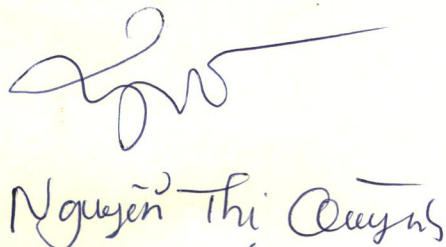 Nguyễn Thị Quỳnh